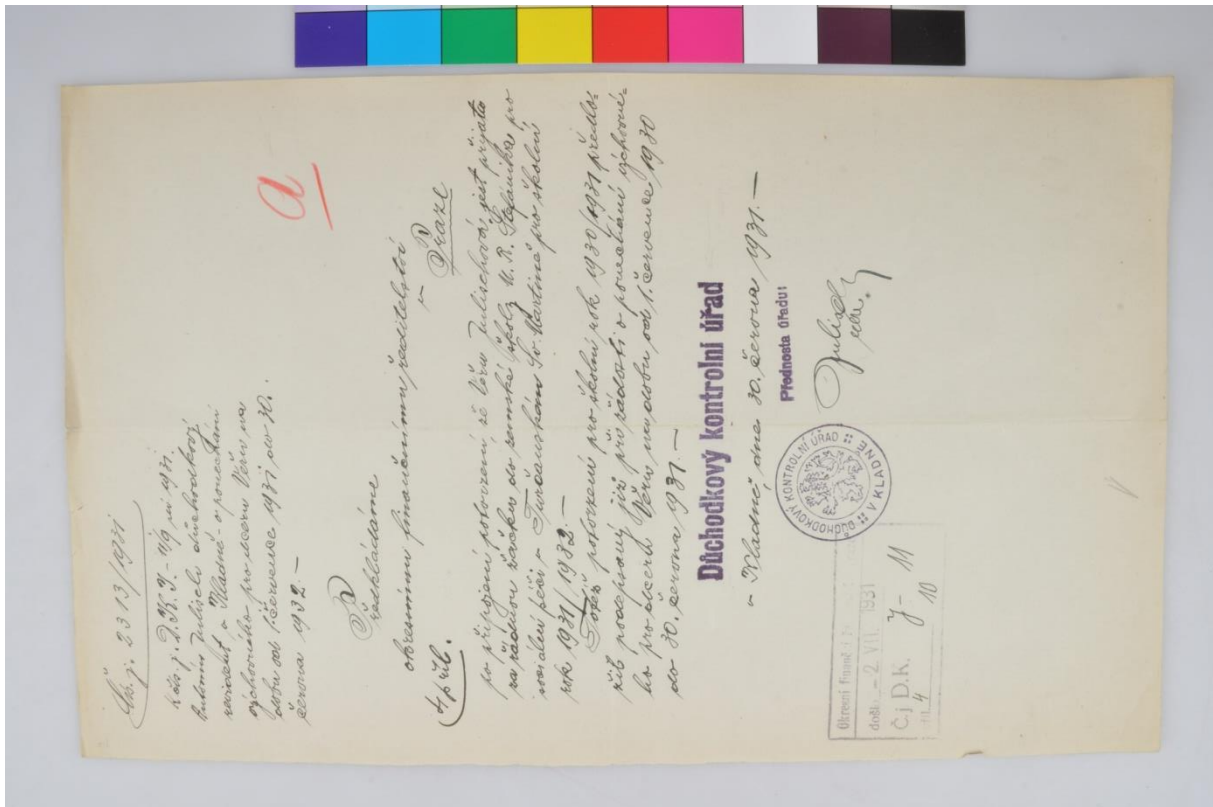 Čís. j. 2313/1931
K čís. j. D. K. J. - 11/9 z 1931
Antonín Julisch důchodkový
revident v Kladně - o ponechání
výchovného pro dceru Věru na
dobu od 1. července 1931 do 30.
června 1932. —
a
Předkládáme
okresnímu finančnímu ředitelství
v
Praze
4 příl.
po připojení potvrzení že Věra Julischová jest přijata
za řádnou žačku do zemské školy M. R. Štefánika pro
sociální péči v Turčanském Sv. Martině pro školní
rok 1931/1932. —
Totéž potvrzení pro školní rok 1930/1931 předlo-
žil podepsaný již při žádosti o ponechání výchovné-
ho pro dceru Věru na dobu od 1. července 1930
do 30. června 1931. —
Důchodkový kontrolní úřad
v Kladně, dne 30. června 1931. —
Přednosta úřadu:
Julisch
DŮCHODKOVÝ KONTROLNÍ ÚŘAD
V KLADNĚ
Okresní finanč
došlo - 2 VII. 1931
Č. j. D. K. J - 11
4 10